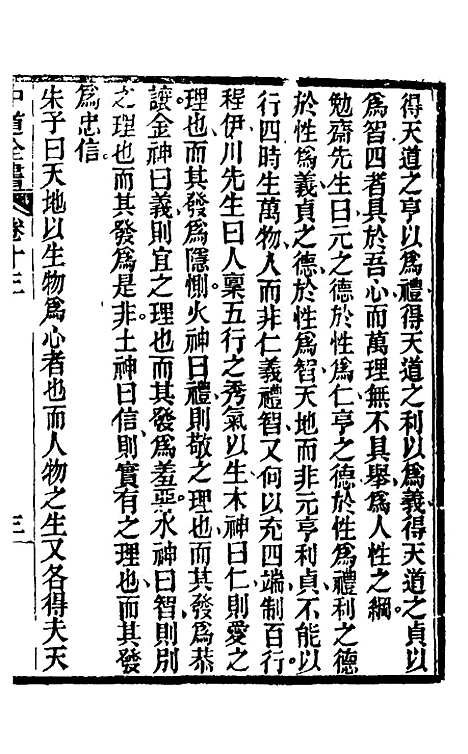 得天道之亨以爲禮得天道之利以爲義得天道之貞以
爲智四者具於吾心而萬理無不具舉爲人性之綱。
勉齋先生曰元之德於性爲仁亨之德於性爲禮利之德
於性爲義貞之德於性爲智天地而非元亨利貞不能以
行四時生萬物人而非仁義禮智又何以充四端制百行
程伊川先生曰人稟五行之秀氣以生木神曰仁則愛之
理也而其發爲隱惻火神曰禮則敬之理也而其發爲恭
讓金神曰義則宜之理也而其發爲羞惡水神曰智則別
之理也而其發爲是非土神曰信則實有之理也而其發
爲忠信
朱子曰天地以生物爲心者也而人物之生又各得夫天
中道全書 卷十三 三